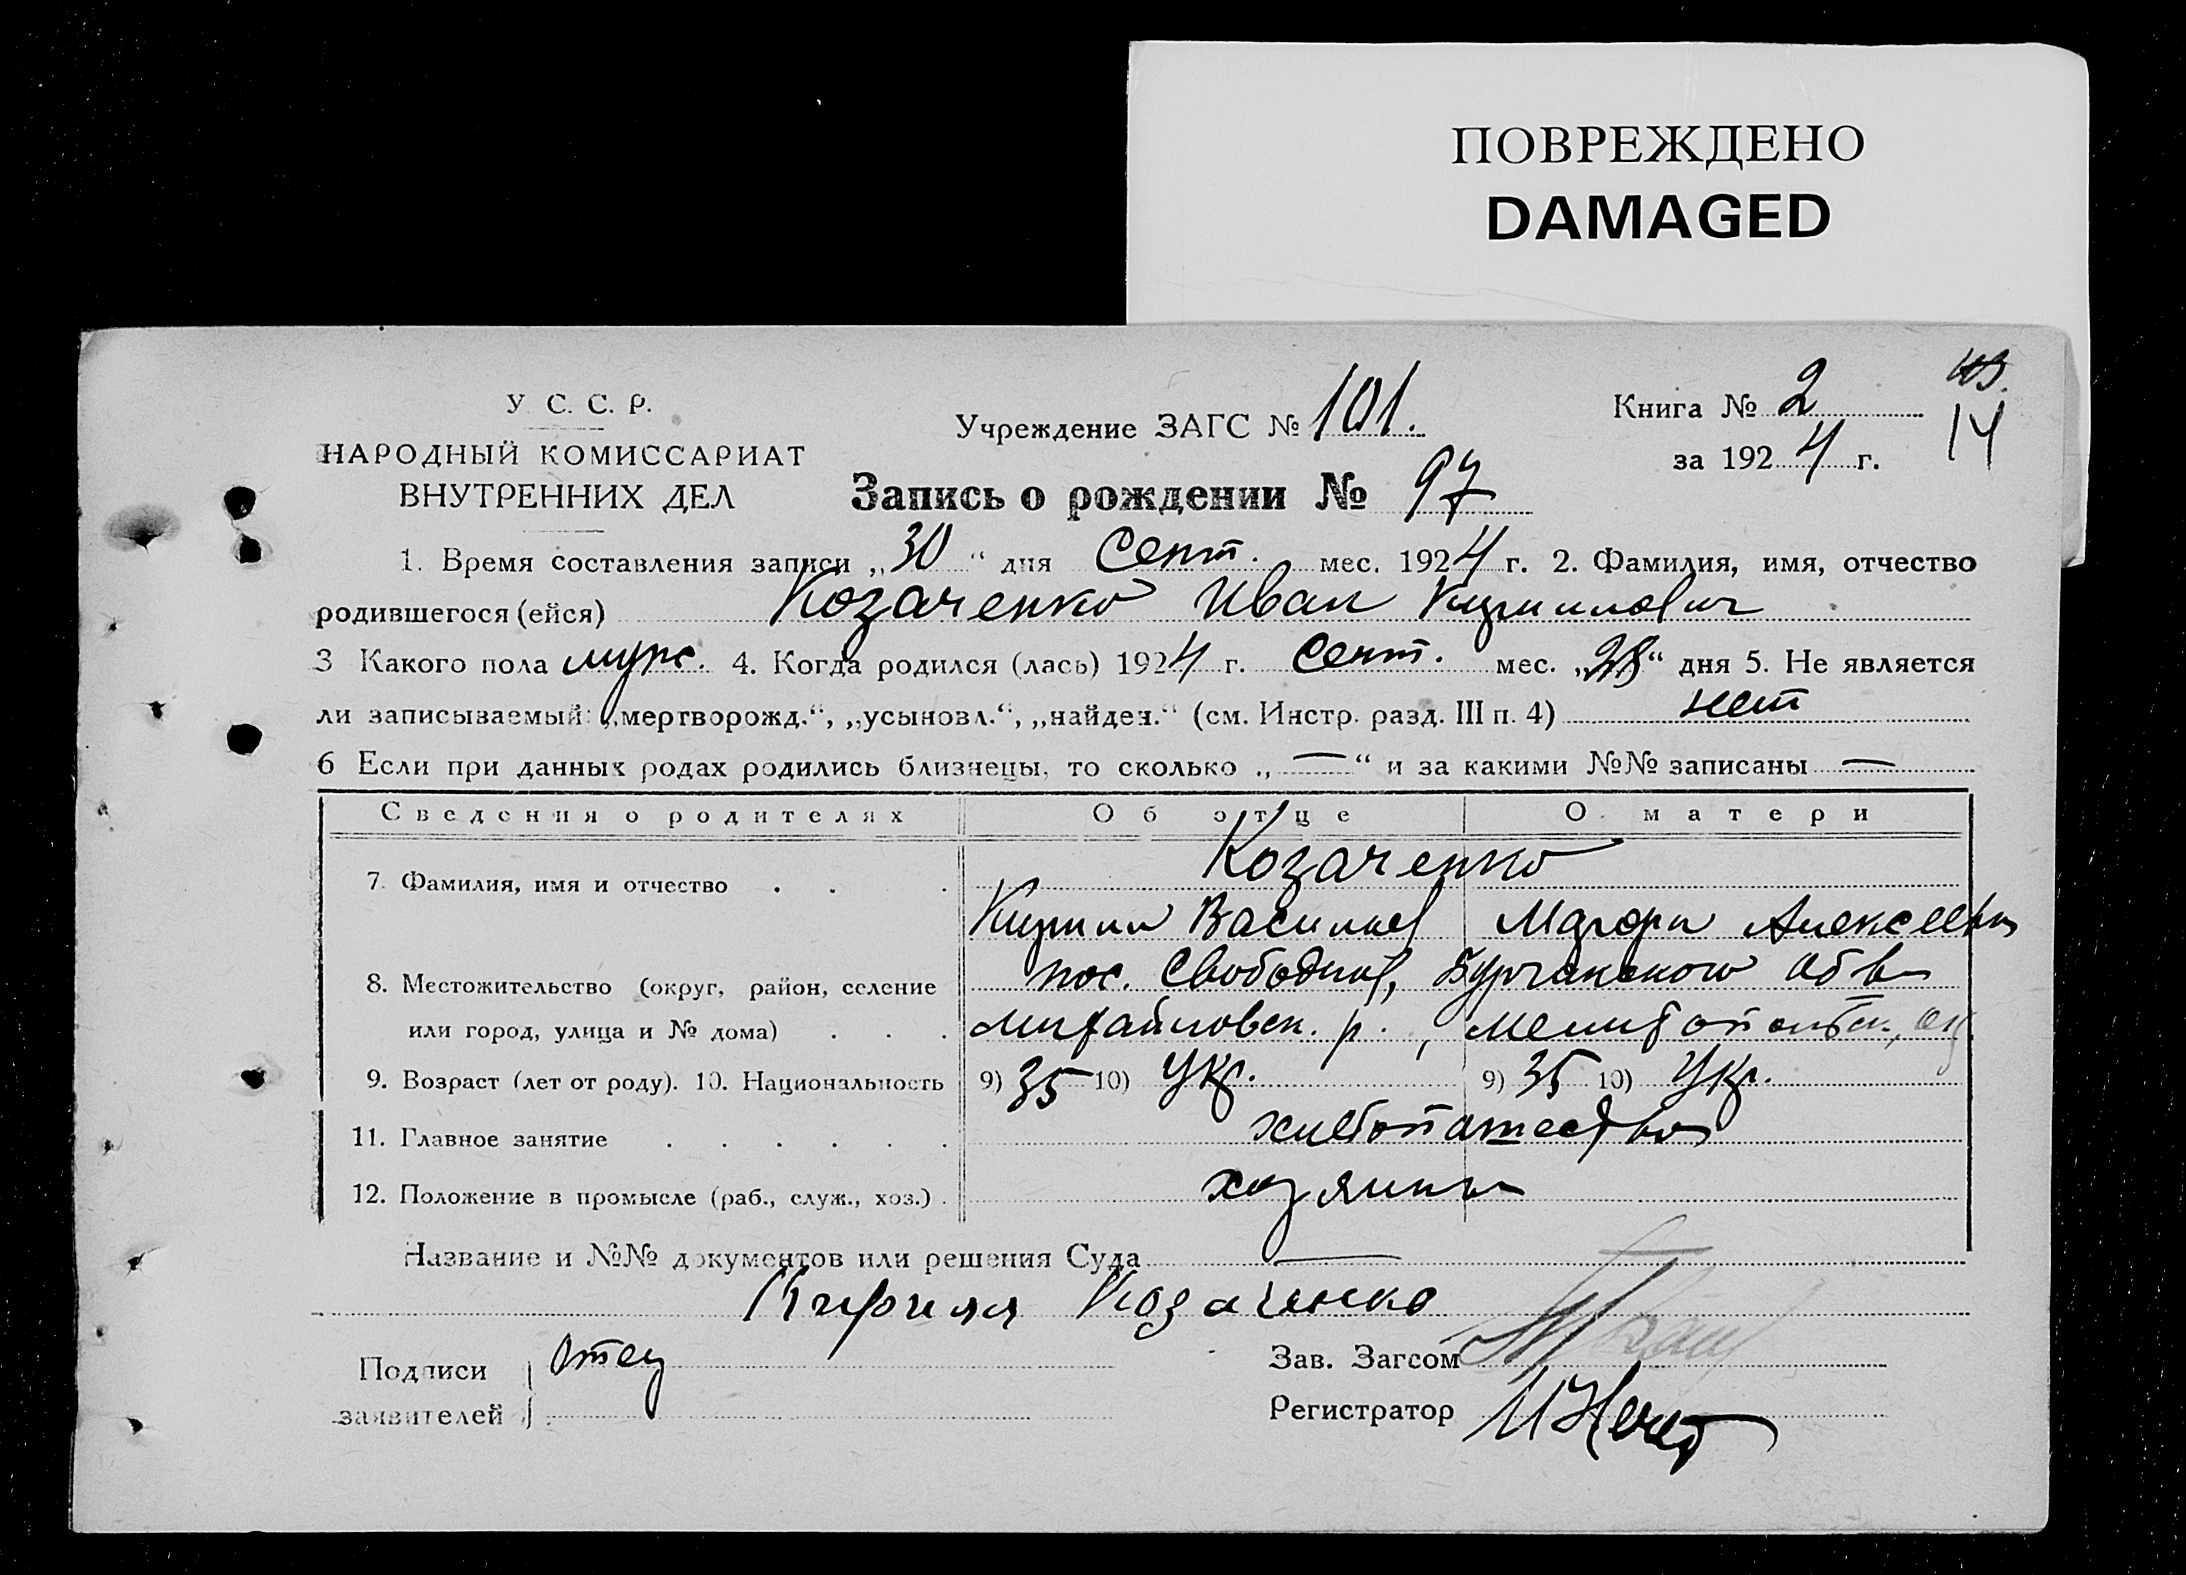 ПОВРЕЖДЕНО
DAMAGED
У. С. С. Р.
НАРОДНЫЙ КОМИССАРИАТ
ВНУТРЕННИХ ДЕЛ
Учреждение ЗАГС № 101.
Книга № 2
за 1924 г.
14
Запись о рождении № 97
1. Время составления записи „30“ дня Сент. мес. 1924 г. 2. Фамилия, имя, отчество
родившегося (ейся) Козаченко Иван Кириллович
3 Какого пола мужс. 4. Когда родился (лась) 1924 г. Сент. мес. „28“ дня 5. Не является
ли записываемый: „мертворожд.“, „усыновл.“, „найден.“ (см. Инстр. разд. III п. 4) нет
6 Если при данных родах родились близнецы, то сколько „—“ и за какими №№ записаны —
Сведения о родителях Об отце О матери
7. Фамилия, имя и отчество . . . Козаченко
Кирилл Васильев Алексеевна
8. Местожительство (округ, район, селение пос. Свободный, Бурчакского об-ва
или город, улица и № дома) . . . Михайловск. р., Мелитопольск. ок
9. Возраст (лет от роду). 10. Национальность 9) 35 10) Укр. 9) 35 10) Укр.
11. Главное занятие . . . . . . хлебопашество
12. Положение в промысле (раб., служ., хоз.) . хозяева
Название и №№ документов или решения Суда —
Кирилл Козаченко
Подписи отец
заявителей
Зав. Загсом
Регистратор